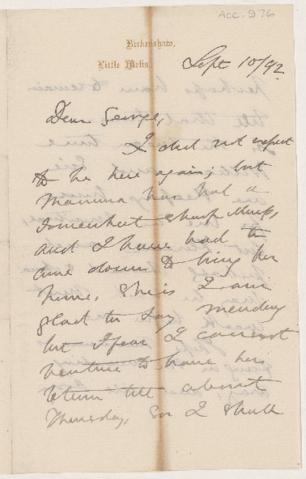 ACC. 976
Birkenshaw,
Little Metis.
Sept 10/92
Dear George,
I did not expect
to be here again; but
Mamma has had a
somewhat sharp
and I have had to
come down to bring her
home. She is I am
glad to say mending
but I fear I cannot
venture to have her
return till about
Thursday, So I shall